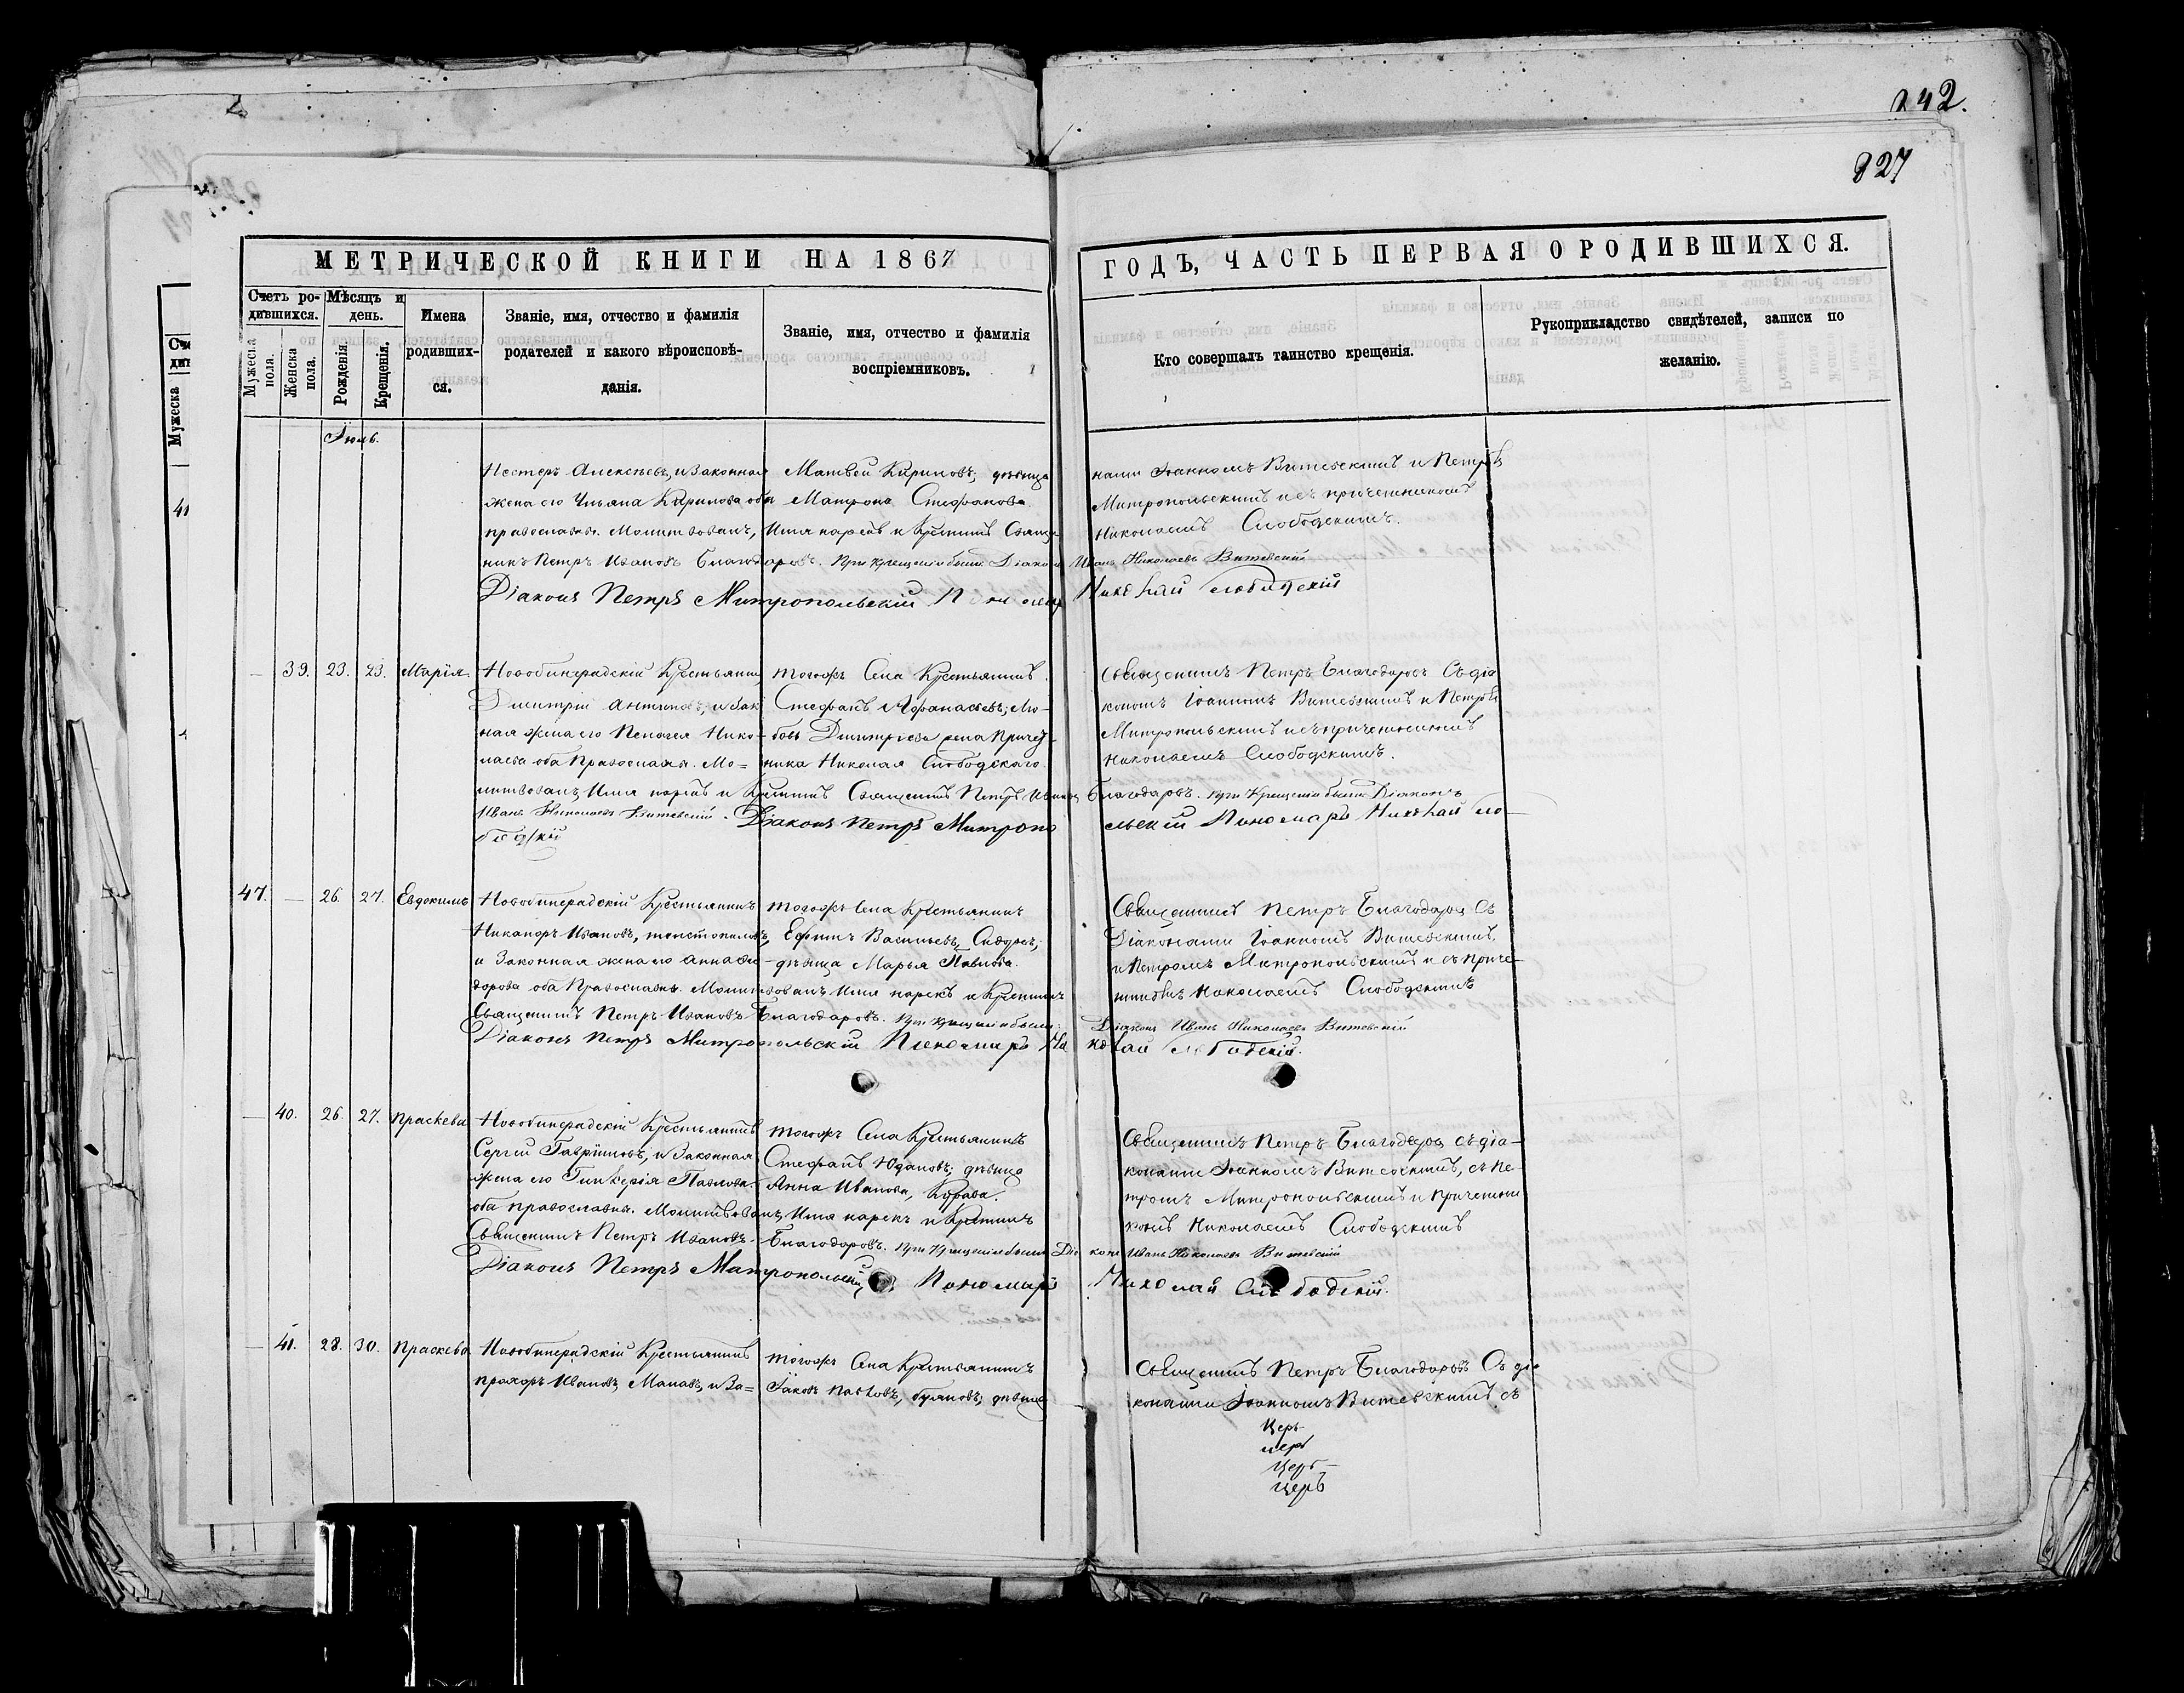 242.
827
МЕТРИЧЕСКОЙ КНИГИ НА 1867
ГОДЪ, ЧАСТЬ ПЕРВАЯ О РОДИВШИХСЯ.
Счетъ ро-
дившихся.
Мужеска
пола.
Женска
пола.
Мѣсяцъ и
день.
Рожденія.
Крещенія.
Имена
родивших-
ся.
Званіе, имя, отчество и фамилія
родителей и какого вѣроисповѣ-
данія.
Званіе, имя, отчество и фамилія
воспріемниковъ.
Кто совершалъ таинство крещенія.
Рукоприкладство свидѣтелей, записи по
желанію.
Іюль.
Нестеръ Алексѣевъ, и Законная
жена его Ульяна Кирилова оба
православн. Молитвовалъ, Имя нарекъ и Крестилъ Священ
никъ Петръ Ивановъ Благодаровъ. При крещеніи были: Діаконъ Иванъ Николаевъ Витевскій
Діаконъ Петръ Митропольскій Пономарь Николай Слободскій
Матвей Кириловъ; дѣвица
Матрона Стефанова.
нами Іоанномъ Витевскимъ и Петромъ
Митропольскимъ и съ причетникомъ
Николаемъ Слободскимъ.
— 39. 23. 23. Марія
Новобинарадскій Крестьянинъ
Дмитрій Антиповъ, и Зак
ная жена его Пелагея Нико-
лаева оба Православн. Мо=
литвовалъ, Имя нарекъ и Крестилъ Священникъ Петръ Ивановъ Благодаровъ. При Крещеніи были Діаконъ
Иванъ Николаевъ Витевскій. Діаконъ Петръ Митропо
льскій Пономарь Николай Сло-
бодскій
тогожъ Села Крестьянинъ
Стефанъ Афанасьевъ; Лю-
бовь Дмитріева жена Причет-
ника Николая Слободскаго.
Священникъ Петръ Благодаровъ Съ діа
кономъ Іоанномъ Витевскимъ и Петромъ
Митропольскимъ и съ причетникомъ
Николаемъ Слободскимъ.
47. — 26. 27. Евдокимъ
Новобинарадскій Крестьянинъ
Никаноръ Ивановъ,
и Законная жена его Анна Си-
дорова оба Православн. Молитвовалъ Имя нарекъ и Крестилъ
Священникъ Петръ Ивановъ Благодаровъ. При крещеніи были:
Діаконъ Иванъ Николаевъ Витевскій
Діаконъ Петръ Митропольскій Пономарь Ни
колай Слободскій.
тогожъ Села Крестьянинъ
Ефимъ Васильевъ,
дѣвица Марья Павлова.
Священникъ Петръ Благодаровъ Съ
Діаконами Іоанномъ Витевскимъ,
и Петромъ Митропольскимъ и съ приче-
тникомъ Николаемъ Слободскимъ
— 40. 26. 27. Праскева
Новобинарадскій Крестьянинъ
Сергій Гавріиловъ, и Законная
жена его Гликерія Павлова.
оба православн. Молитвовалъ, Имя нарекъ и Крестилъ
Священникъ Петръ Ивановъ Благодаровъ. При Крещеніи были Діа
конъ Иванъ Николаевъ Витевскій
Діаконъ Петръ Митропольскій Пономарь
Николай Слободскій.
тогожъ Села Крестьянинъ
Стефанъ Юдановъ; дѣвица
Анна Иванова,
Священникъ Петръ Благодаровъ съ діа-
конами Іоанномъ Витевскимъ, съ Пе-
тромъ Митропольскимъ и Причетни
комъ Николаемъ Слободскимъ
— 41. 28. 30. Праскева
Новобинарадскій Крестьянинъ
Прохоръ Ивановъ, и За=
тогожъ Села Крестьянинъ
Іаковъ Павловъ, дѣвица
Священникъ Петръ Благодаровъ Съ діа
конами Іоанномъ Витевскимъ, съ
Церъ
церъ
Церъ
Церъ